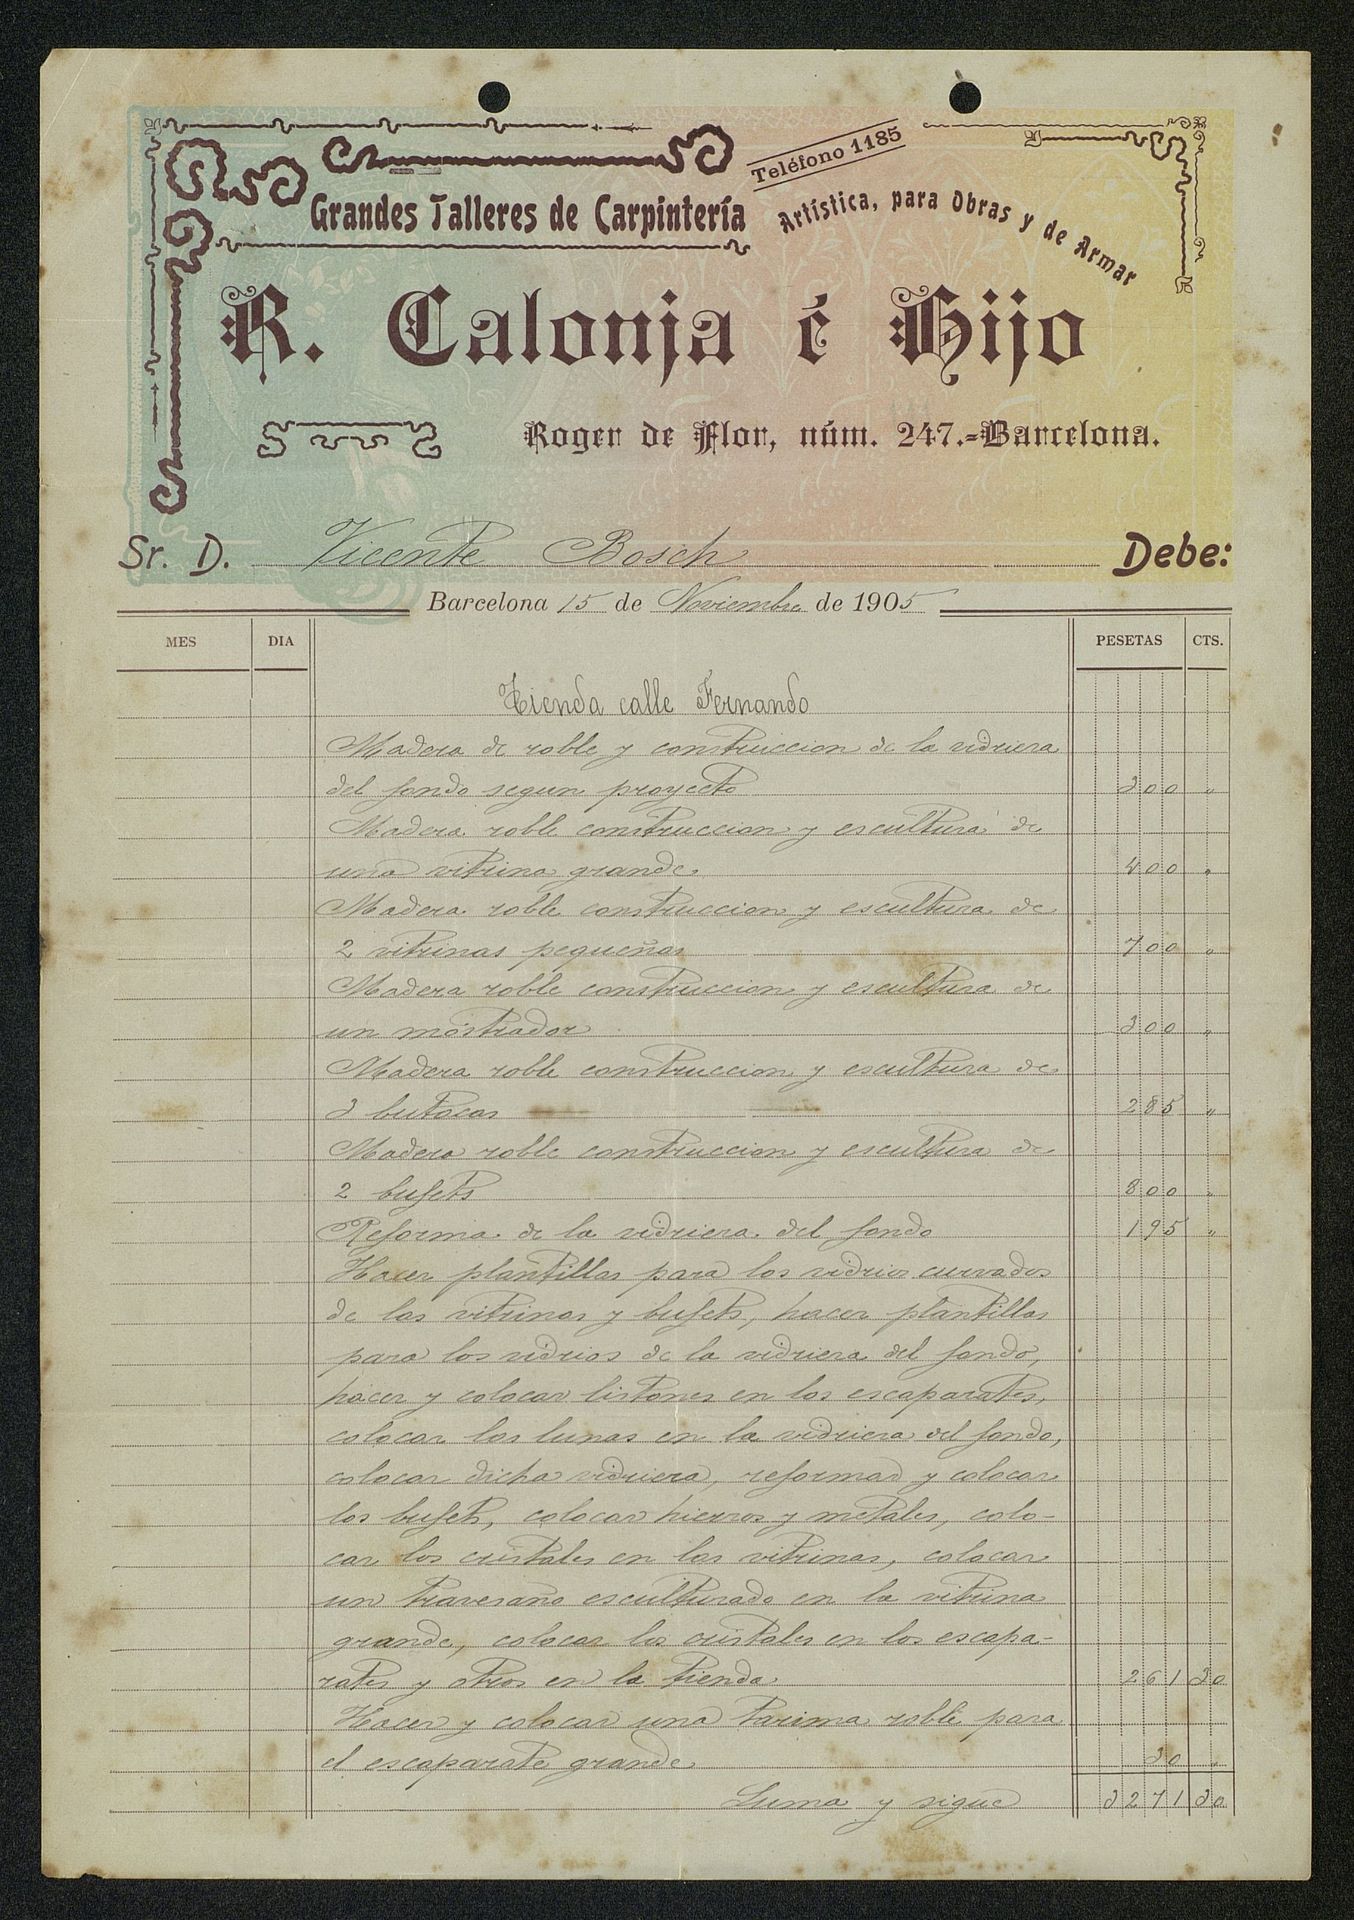 Teléfono 1185
Grandes Talleres de Carpintería Artística, para Obras y de Armar
R. Calonja é Hijo
Roger de Flor, núm. 247.=Barcelona.
Sr. D. Vicente Bosch Debe:
Barcelona 15 de Noviembre de 1905
MES DIA PESETAS CTS.
Tienda calle Fernando
Madera de roble y construccion de la vidriera
del fondo segun proyecto 300 "
Madera roble construccion y escultura de
una vitrina grande 400 "
Madera roble construccion y escultura de
2 vitrinas pequeñas 700 "
Madera roble construccion y escultura de
un mostrador 300 "
Madera roble construccion y escultura de
3 butacas 285 "
Madera roble construccion y escultura de
2 bufets 800 "
Reforma de la vidriera del fondo 195 "
Hacer plantillas para los vidrios curvados
de las vitrinas y bufets, hacer plantillas
para los vidrios de la vidriera del fondo,
hacer y colocar listones en los escaparates,
colocar las lunas en la vidriera del fondo,
colocar dicha vidriera, reformar y colocar
los bufets, colocar hierros y metales, colo-
car los cristales en las vitrinas, colocar
un travesaño esculturado en la vitrina
grande, colocar los cristales en los escapa-
rates y otros en la tienda 261 30
Hacer y colocar una tarima roble para
el escaparate grande 30 "
Suma y sigue 3271 30